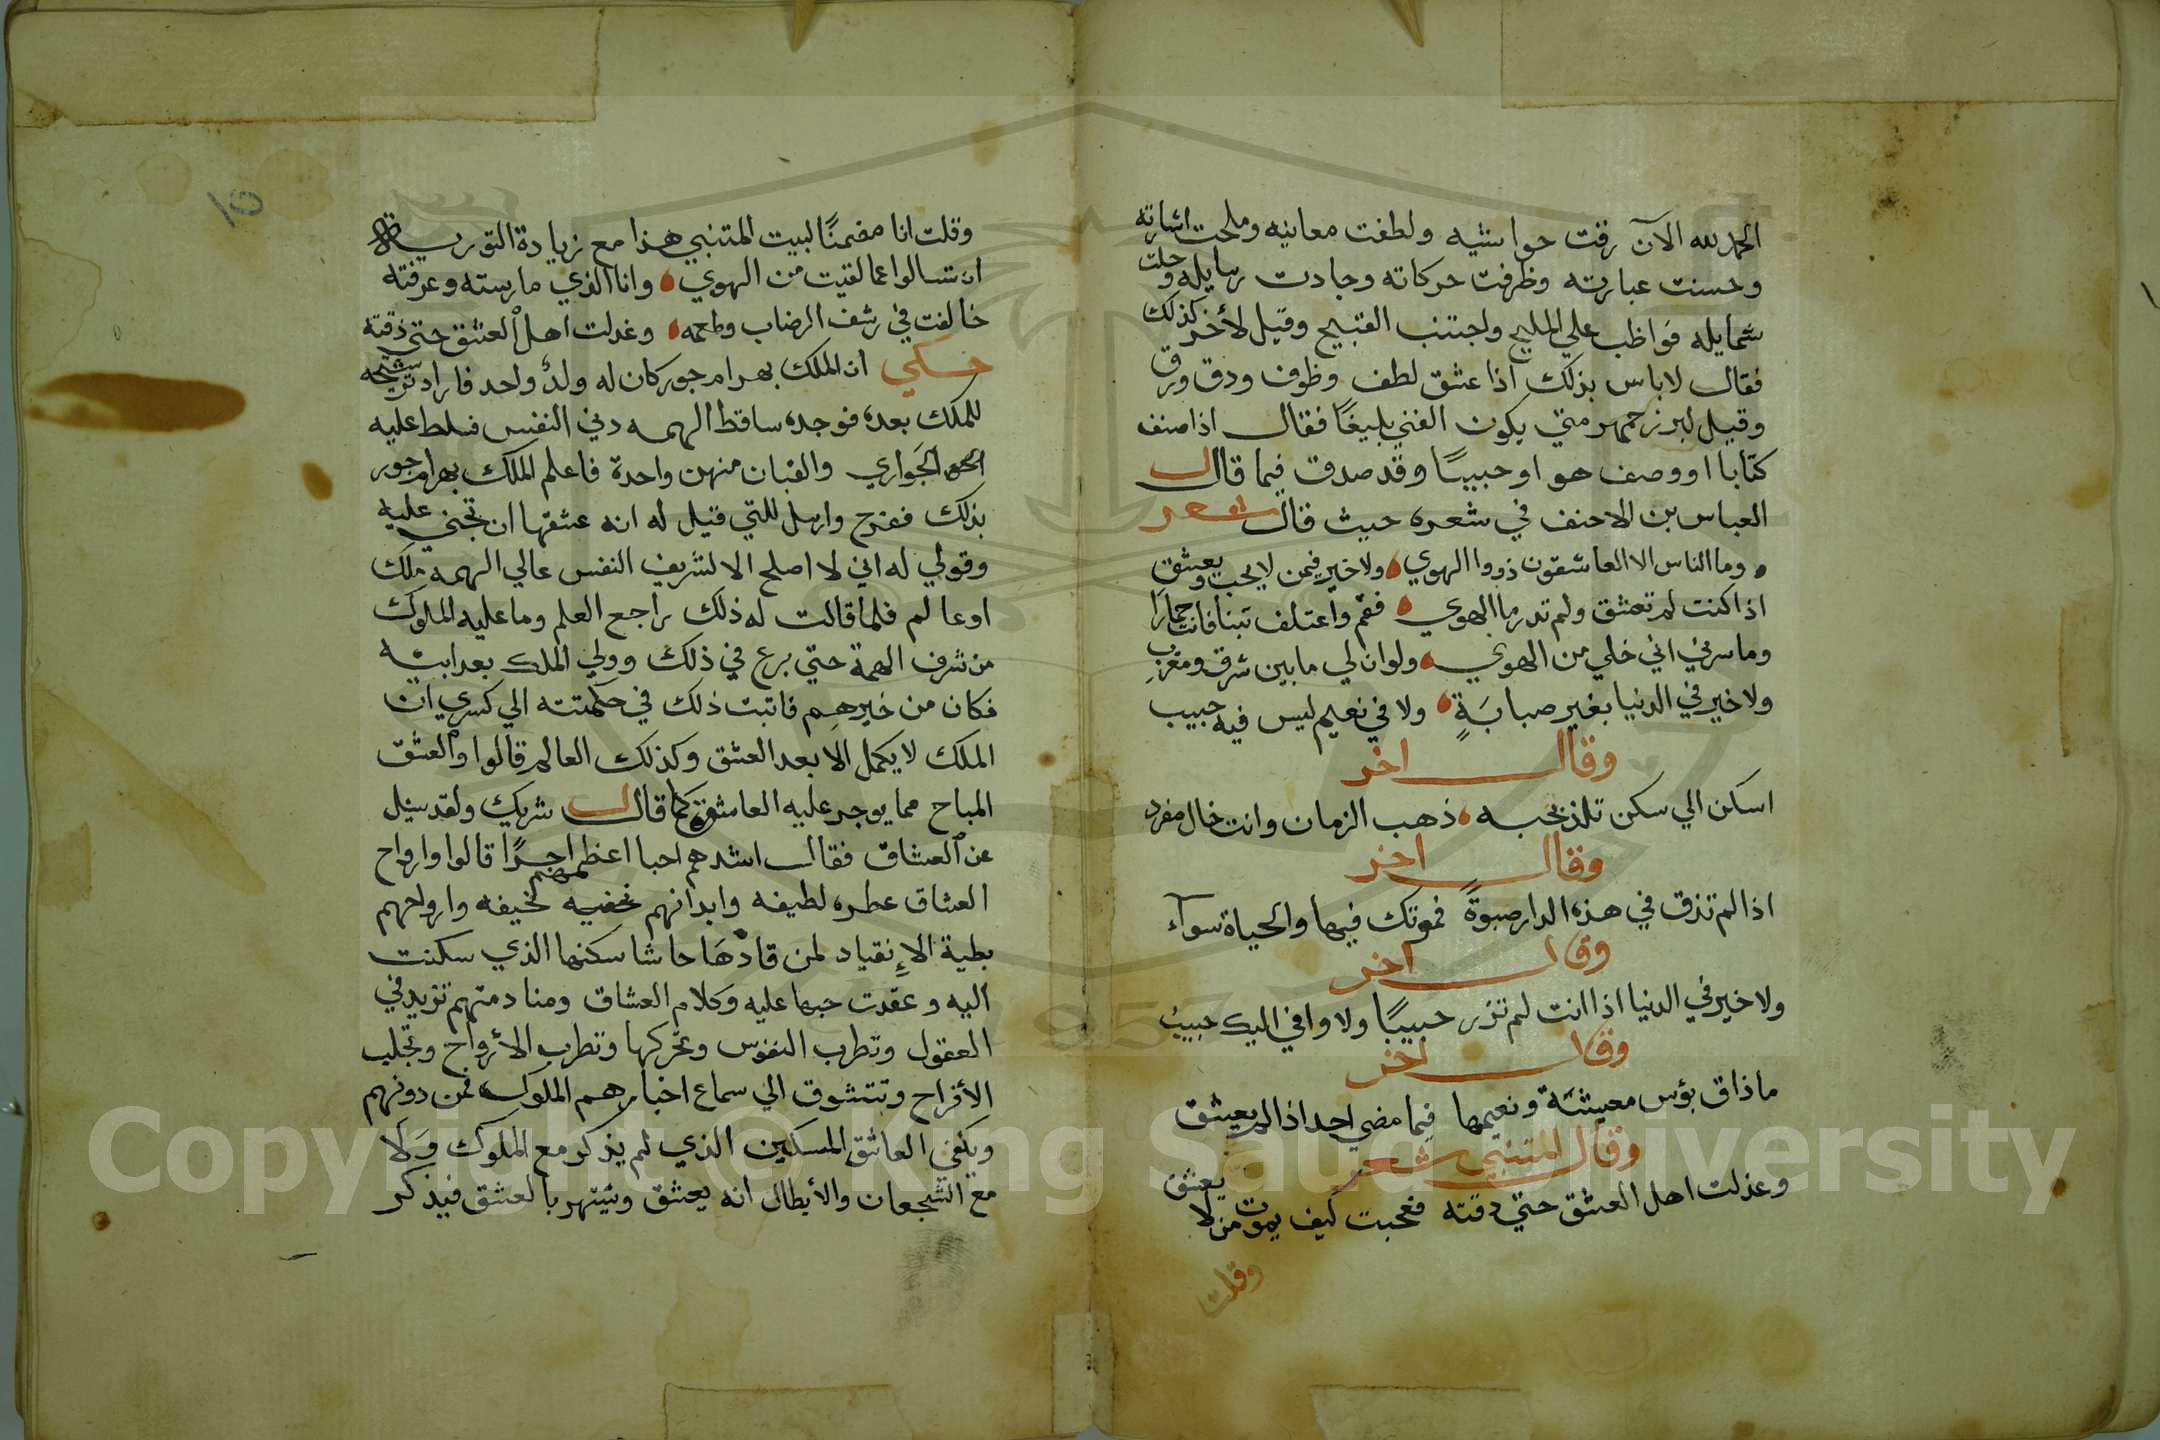 الحمد لله الآن رقت حواشيه ولطفت معانيه وملحت اشارته
وحسنت عبارته وظرفت حركاته وجادت رسايله وحلت
شمايله فواظب علي المليح واجتنب القبيح وقيل لأخر كذلك
فقال لا باس بذلك اذا عشق لطف وظرف ودق ورق
وقيل لبرزجمهر متي يكون الفتي بليغًا فقال اذا صنف
كتابا او وصف هوا او حبيبًا وقد صدق فيما قال
العباس بن الاحنف في شعره حيث قال شعر
وما الناس الا العاشقون ذووا الهوي ولا خير فيمن لا يحب ويعشق
اذا كنت لم تعشق ولم تدر ما الهوي فقم واعتلف تبنا فانت حمارا
وما سرني اني خلي من الهوي ولو ان لي ما بين شرق ومغرب
ولا خير في الدنيا بغير صبابَةٍ ولا في نعيم ليس فيه حبيب
وقال اخر
اسكن الي سكن تلذ بحبه ذهب الزمان وانت خال مفرد
وقال اخر
اذا لم تذق في هذه الدار صبوةً فموتك فيها والحياة سوآء
وقال اخر
ولا خير في الدنيا اذا انت لم تزر حبيبًا ولا وافي اليك حبيبُ
وقال اخر
ما ذاق بؤس معيشة ونعيمها فيما مضي احد اذا لم يعشق
وقال المتنبي شعر
وعذلت اهل العشق حتي ذقته فعجبت كيف يموت من لا يعشق
وقلت
وقلت انا مضمنًا لبيت المتنبي هذا مع زيادة التورية
ان تسالوا عما لقيت من الهوي وانا الذي مارسته وعرفته
خالفت في رشف الرضاب وطعمه وعذلت اهل العشق حتي ذقته
حكي ان الملك بهرام جور كان له ولدٌ واحد فاراد ترشيحه
للملك بعده فوجده ساقط الهمه دني النفس فسلط عليه
الجواري والقيان منهن واحدة فاعلم الملك بهرام جور
بذلك ففرح وارسل للتي قيل له انه عشقها ان تجني عليه
وقولي له اني لا اصلح الا لشريف النفس عالي الهمه ملك
او عالم فلما قالت له ذلك راجع العلم وما عليه الملوك
من شرف الهمة حتي برع في ذلك وولي الملك بعد ابيه
فكان من خيرهم فاثبت ذلك في حكمته الي كسري ان
الملك لا يكمل الا بعد العشق وكذلك العالم قالوا والعشق
المباح مما يوجر عليه العاشق كما قال شريك ولقد سيل
عن العشاق فقال اشدهم احبا اعظمهم اجرًا قالوا وارواح
العشاق عطره لطيفه وابدانهم نحفيه خفيفه وارواحهم
بطية الإنقياد لمن قادهَا حاشا سكنها الذي سكنت
اليه وعقدت حبها عليه وكلام العشاق ومنادمتهم تزيد في
العقول وتطرب النفوس وتحركها وتطرب الأرواح وتجلب
الأفراح وتتشوق الي سماع اخبارهم الملوك فمن دونهم
ويكفي العاشق المسكين الذي لم يذكر مع الملوك وَلا
مع الشجعان والأبطال انه يعشق ويشتهر بالعشق فيذكر
Copyright © King Saud University